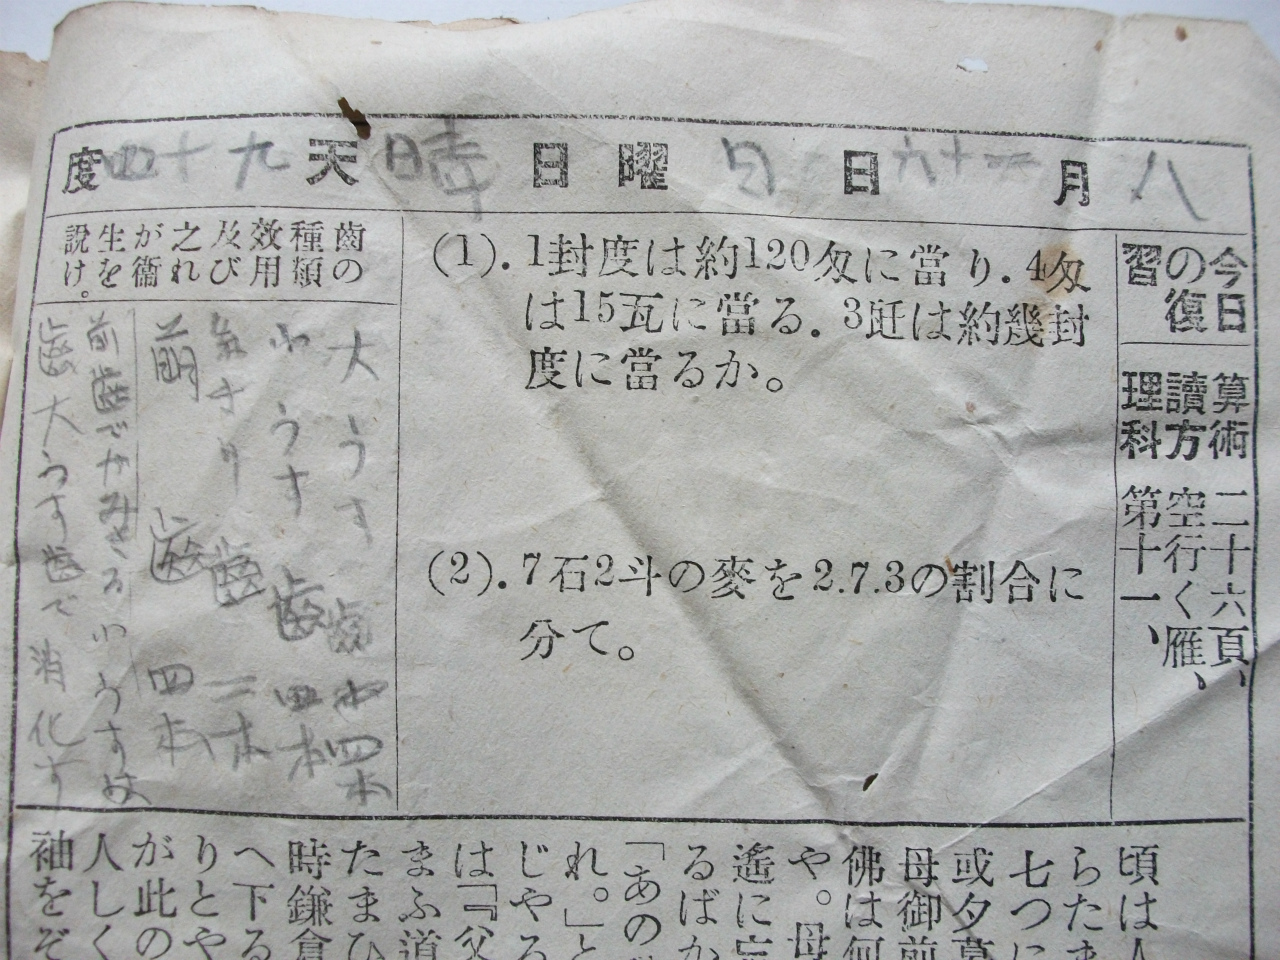 八月十六日 日曜日 晴天 九十四度
今日
の復
習
算術 二十六頁、
讀方 空行く雁、
理科 第十一、
(1). 1封度は約120匁に當り. 4匁
は15瓦に當る. 3瓩は約幾封
度に當るか。
(2). 7石2斗の麥を2.7.3の割合に
分て。
歯の
種類
効用
及び
之れ
が衞
生を
說け。
大うす歯 十四本
小うす歯 四本
歯 二本
前歯 四本
前歯でかみきる小うすは
歯大うす歯で消化す
頃は人
らたま
七つに
或夕暮
母御前
佛は何
や。母
遙に
るばか
「あの
れ。」と
じやろ
は『父
まふ道
たまひ
時鎌倉
へ下る
りとや
が此の
人しく
袖をぞ